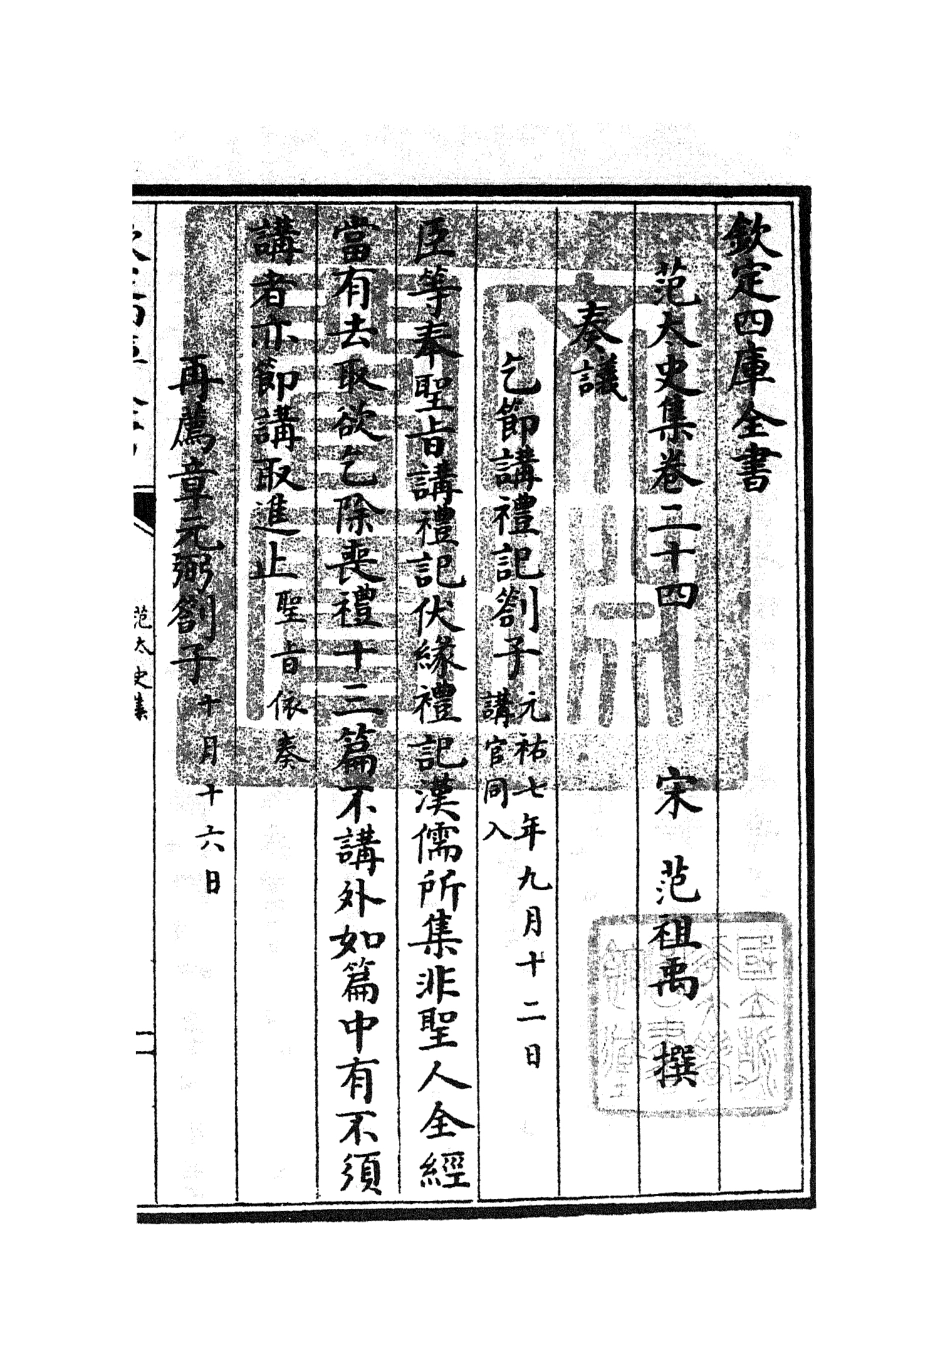 欽定四庫全書
范太史集卷二十四　宋　范祖禹　撰
奏議
乞節講禮記劄子元祐七年九月十二日
講官同入
臣等奉聖旨講禮記伏緣禮記漢儒所集非聖人全經
當有去取欲乞除喪禮十三篇不講外如篇中有不須
講者亦節講取進止聖旨依奏
再薦章元弼劄子十月十六日
范太史集